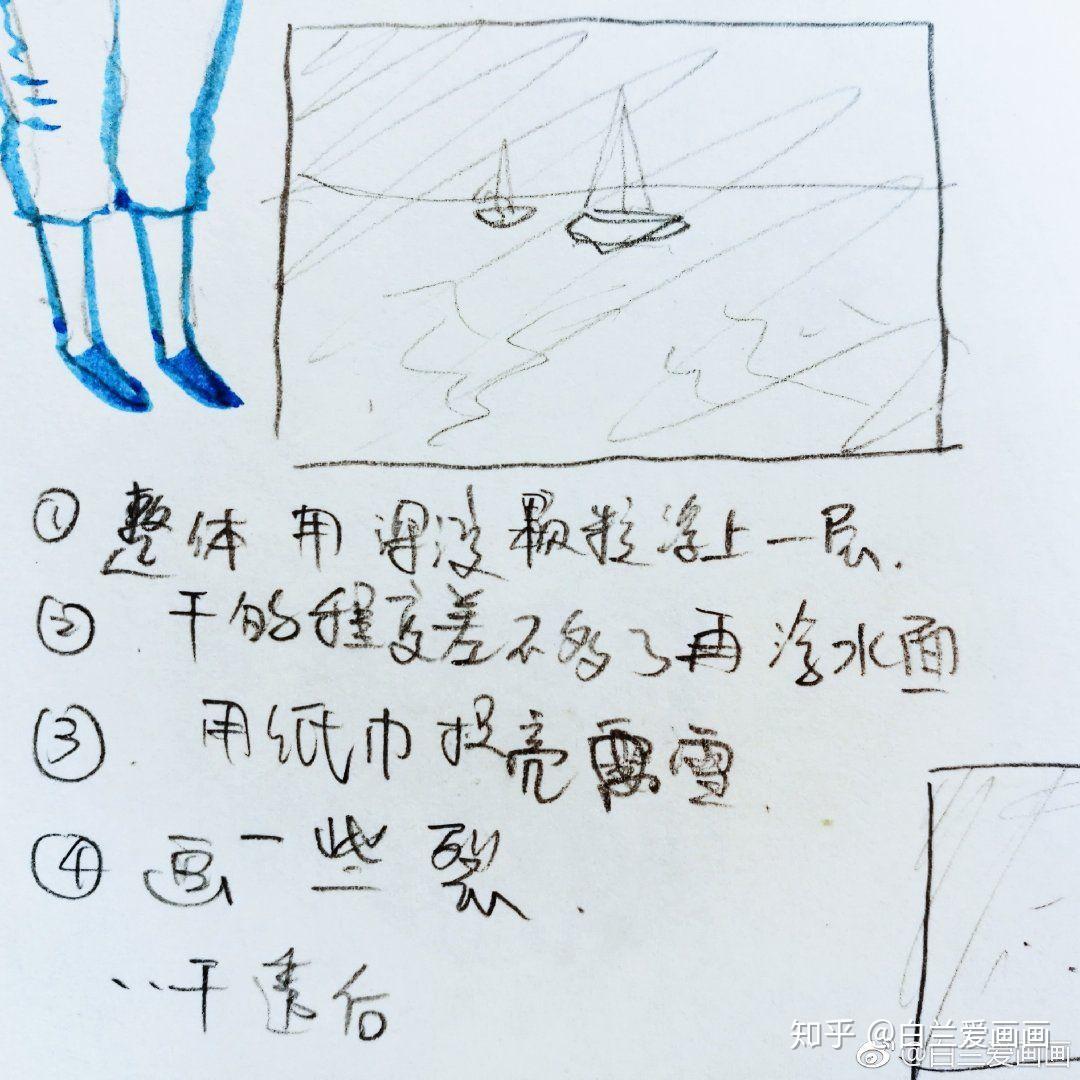 ① 整体用深浅颗粒浮上一层.
② 干的程度差不多了再涂水面
③ 用纸巾提亮雪.
④ 画一些裂.
干透后
知乎 @白兰爱画画
@白兰爱画画